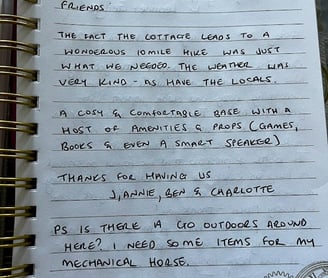 FRIENDS
THE FACT THE COTTAGE LEADS TO A
WONDEROUS 10 MILE HIKE WAS JUST
WHAT WE NEEDED. THE WEATHER WAS
VERY KIND - AS HAVE THE LOCALS.
A COSY & COMFORTABLE BASE WITH A
HOST OF AMENITIES & PROPS (GAMES,
BOOKS & EVEN A SMART SPEAKER)
THANKS FOR HAVING US
J, ANNIE, BEN & CHARLOTTE
PS IS THERE A GO OUTDOORS AROUND
HERE? I NEED SOME ITEMS FOR MY
MECHANICAL HORSE.